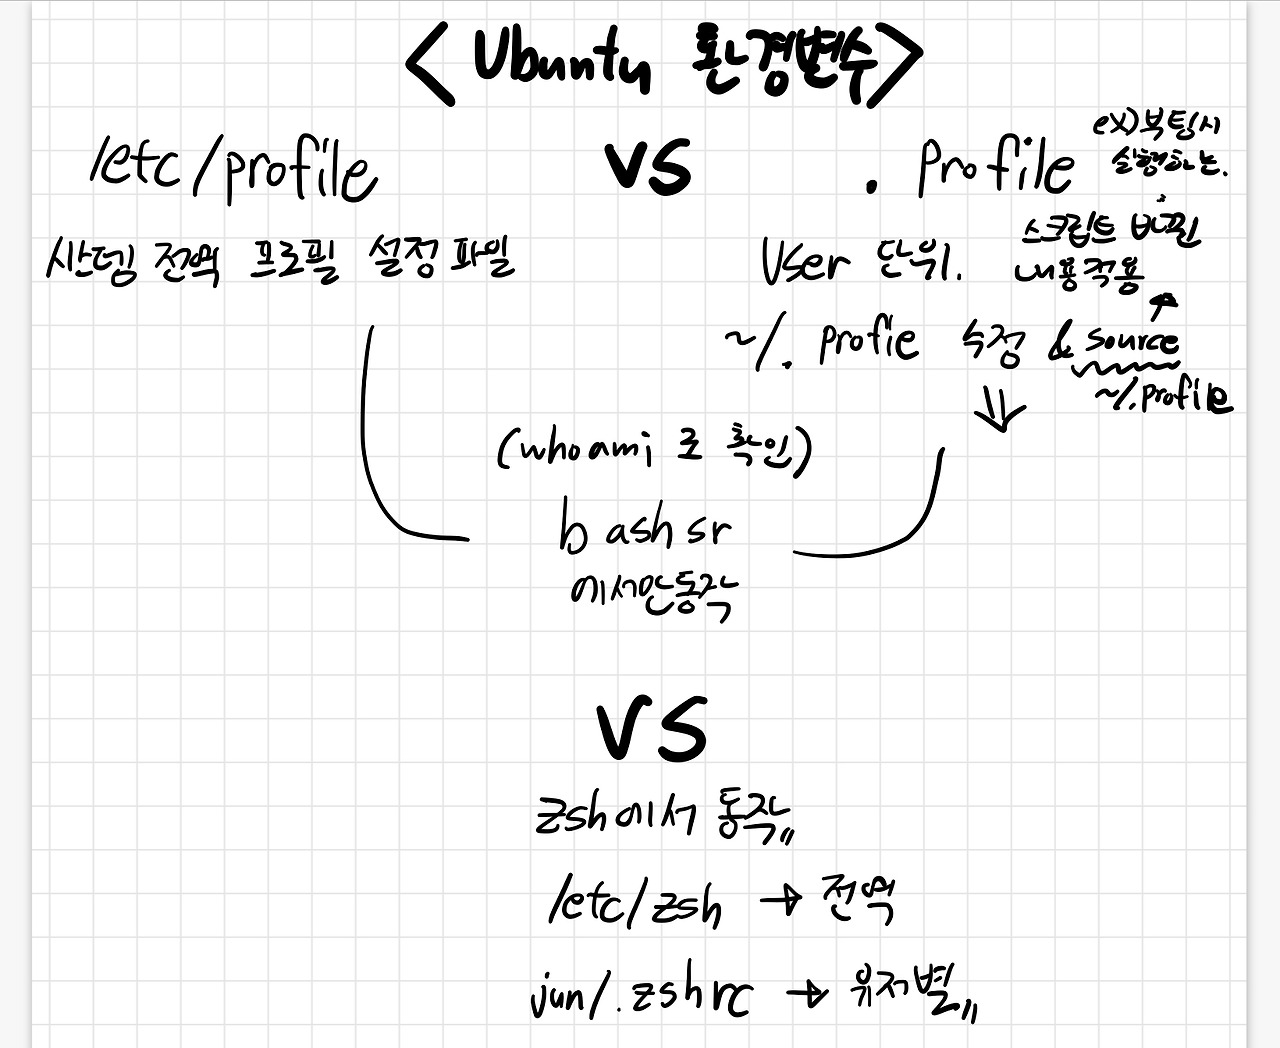 < Ubuntu 환경변수>
/etc/profile VS . Profile
ex)부팅시
실행하는.
시스템 전역 프로필 설정 파일
User 단위.
스크립트 바뀐
내용적용
~/. profie 수정 & source
~/.profile
(whoami 로 확인)
bashsr
에서만동작
VS
zsh에서 동작"
/etc/zsh → 전역
jun/.zshrc → 유저별"